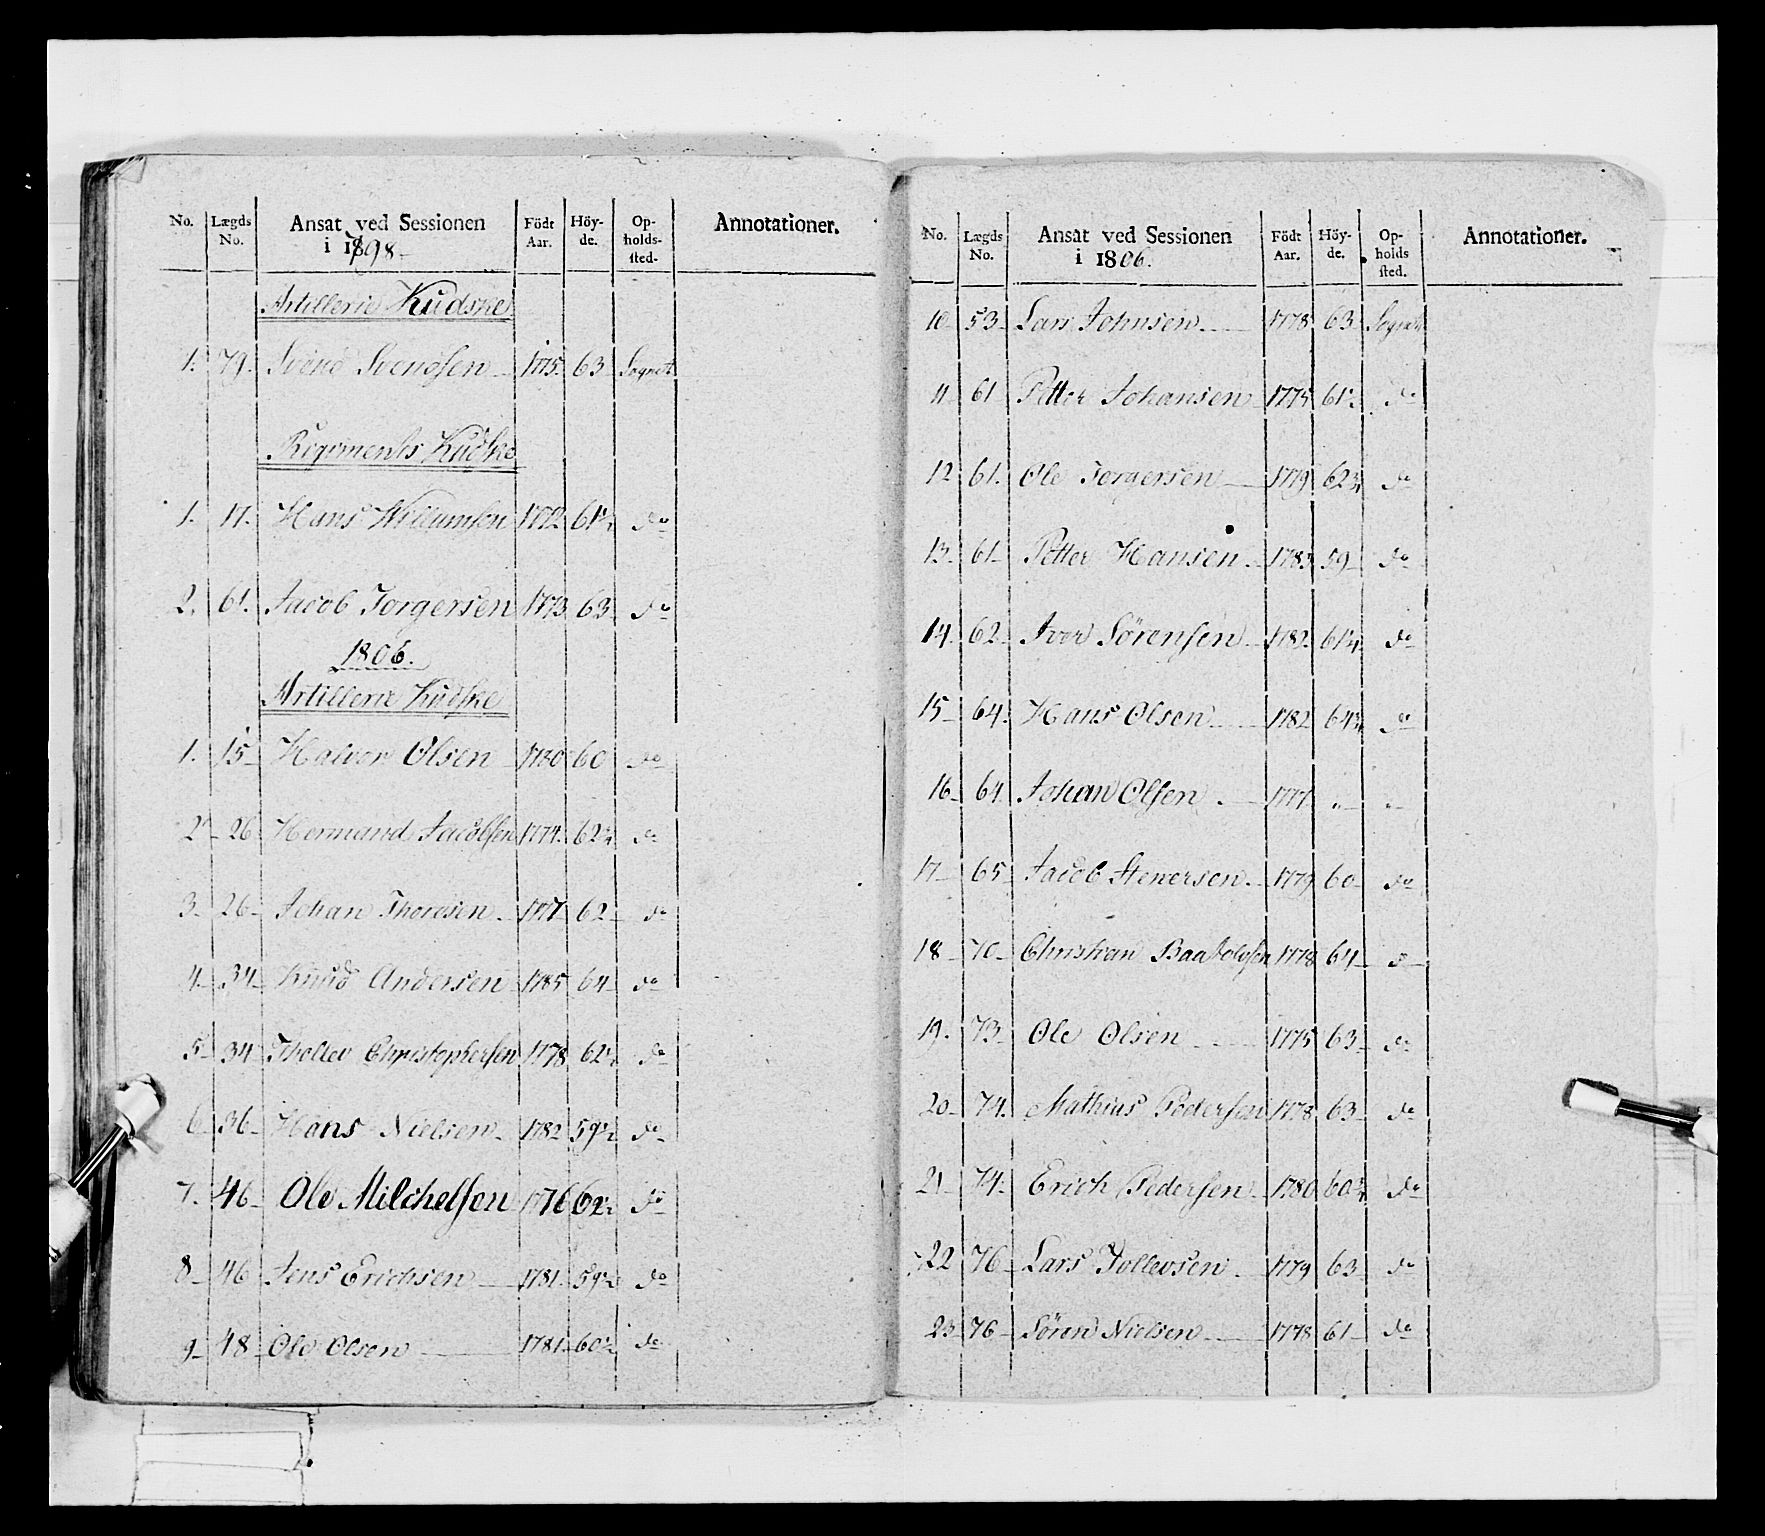 No. Lægds No. Ansat ved Sessionen i 1798 Födt Aar. Höy-de. Op-holds-sted. Annotationer.
Artillerie Kudske
1. 79. Svend Svendsen 1775. 63 Sognet
Regiments Kudske
1. 17. Hans Willumsen 1772 61½ do
2. 61. Jacob Jørgersen 1773 63 do
1806.
Artillerie Kudske
1. 15 Halvor Olsen 60 do
2 26 Hermand Jacobsen 1774. do
3 26 Johan Thoresen 1777 62 do
4 34 Knud Andersen 1785 64 do
5 34 Thollev Christophersen 1778 62½ do
6 36 Hans Nielsen 1782 59½ do
7. 46 Ole Milchelsen 1776 62½ do
8 46 Jens Erichsen 1781 59½ do
9 48 Ole Olsen 1781 60½ do
No. Lægds No. Ansat ved Sessionen i 1806. Födt Aar. Höy-de. Op-holds sted. Annotationer.
10 53 Lars Johnsen 1778 63 Sognet
11 61 Petter Johansen 1775 61½ do
12 61. Ole Jørgersen 1779 62¾ do
13 61 Petter Hansen 1783 59 do
14. 62 Iver Sörensen 1782 61¼ do
15 64. Hans Olsen 1782 64¾ do
16 64 Johan Olsen 1777 " "
17 65 Jacob Stenersen 1779 60 do
18 70 Christian 1778 64 do
19. 73 Ole Olsen 1775 63 do
20 74. Mathias Pedersen 1778 63 do
21 74. Erich Pedersen 1780 60¾ do
22 76 Lars Tollevsen 1779 63 do
23 76 Sören Nielsen 1778 61 do